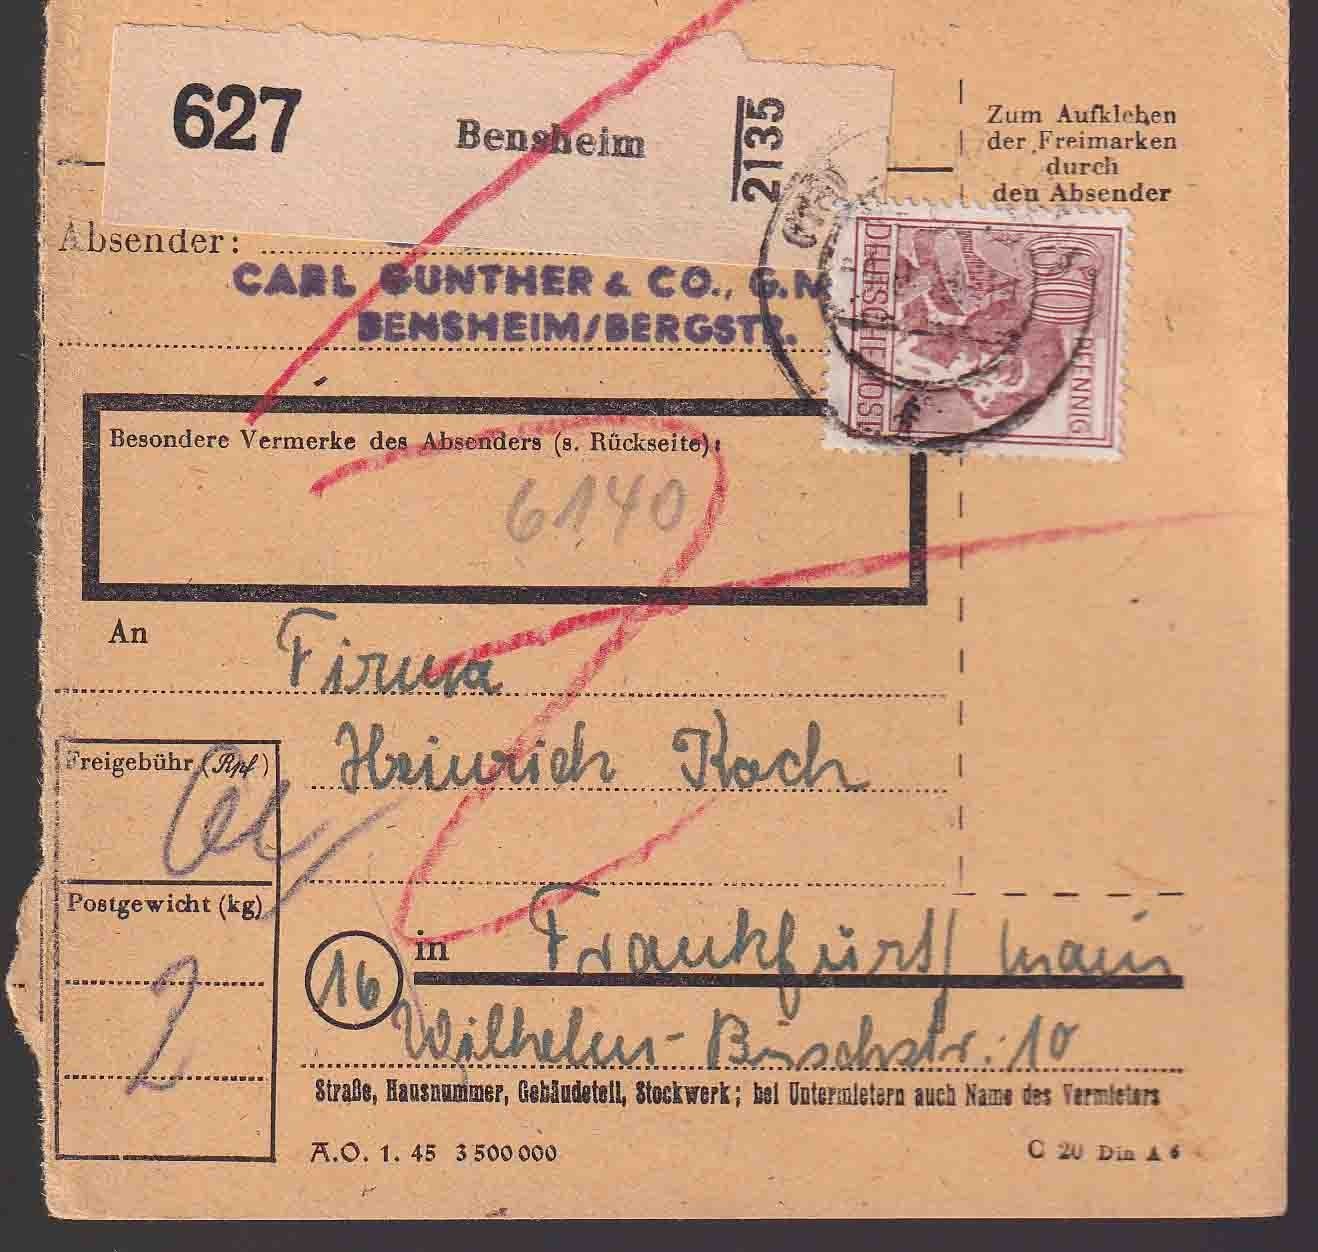 627
Bensheim
2135
Zum Aufkleben
der Freimarken
durch
den Absender
Absender:
CARL GUNTHER & CO., G.M
BENSHEIM/BERGSTR.
60 PFENNIG
DEUTSCHE POST
Besondere Vermerke des Absenders (s. Rückseite):
6140
An
Firma
Heinrich Koch
Freigebühr (Rpf)
Postgewicht (kg)
2
16
in Frankfurt/Main
Wilhelm-Buschstr. 10
Straße, Hausnummer, Gebäudeteil, Stockwerk; bei Untermietern auch Name des Vermieters
A.O. 1. 45 3 500 000
C 20 Din A 6